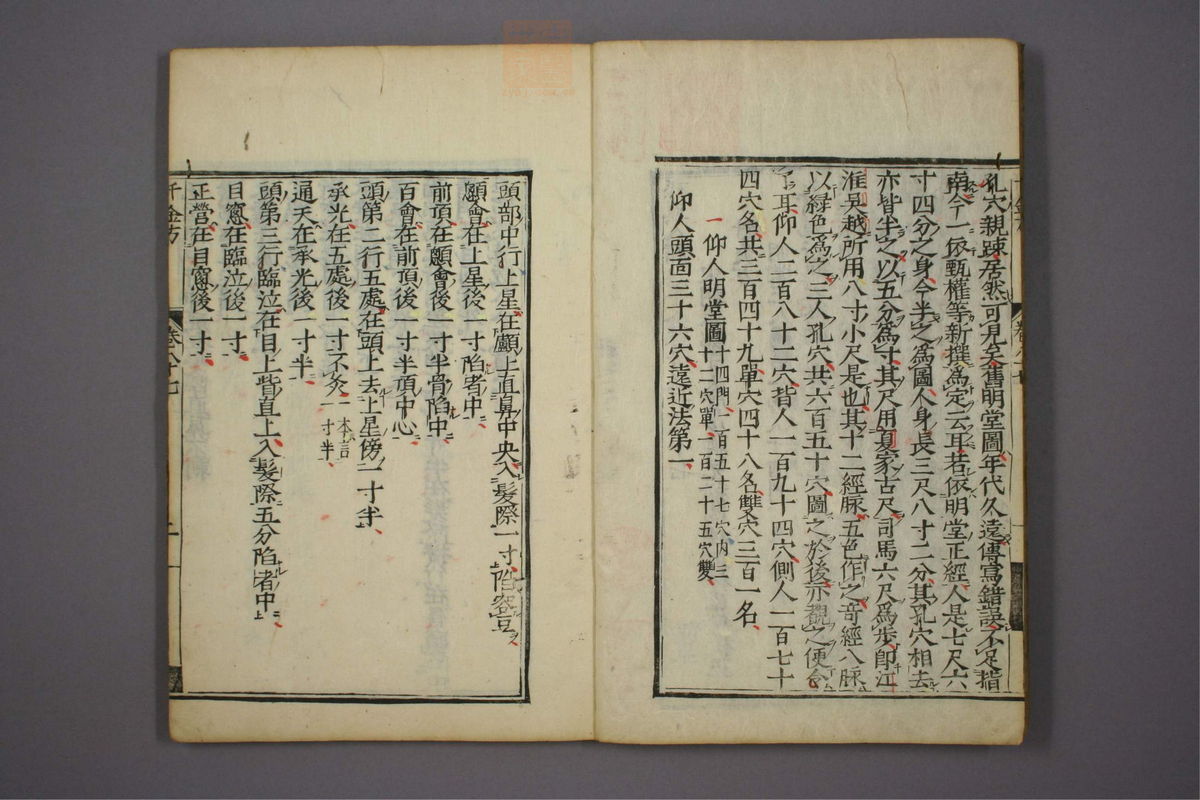 孔穴親疎居然可見矣舊明堂圖年代久遠傳寫錯誤不足指
南今一依甄權等新撰為定云耳若依明堂正經人是七尺六
寸四分之身今半之為圖人身長三尺八寸二分其孔穴相去
亦皆半之以五分為寸其尺用夏家古尺司馬六尺為步即江
淮吳越所用八寸小尺是也其十二經脉五色作之奇經八脉
以綠色為之三人孔穴共六百五十穴圖之於後亦覩之便令
了耳仰人二百八十二穴背人一百九十四穴側人一百七十
四穴名共三百四十九單穴四十八名雙穴三百一名
一仰人明堂圖十四門一百五十七穴内三
十二穴單一百二十五穴雙
仰人頭面三十六穴遠近法第一
頭部中行上星在顱上直鼻中央入髮際一寸陷容豆
顖會在上星後一寸陷者中
前頂在顖會後一寸半骨陷中
百會在前頂後一寸半頂中心
頭第二行五處在頭上去上星傍一寸半
承光在五處後一寸不灸一本言
一寸半
通天在承光後一寸半
頭第三行臨泣在目上眥直上入髮際五分陷者中
目窻在臨泣後一寸
正營在目窻後一寸
千金方
卷八十七